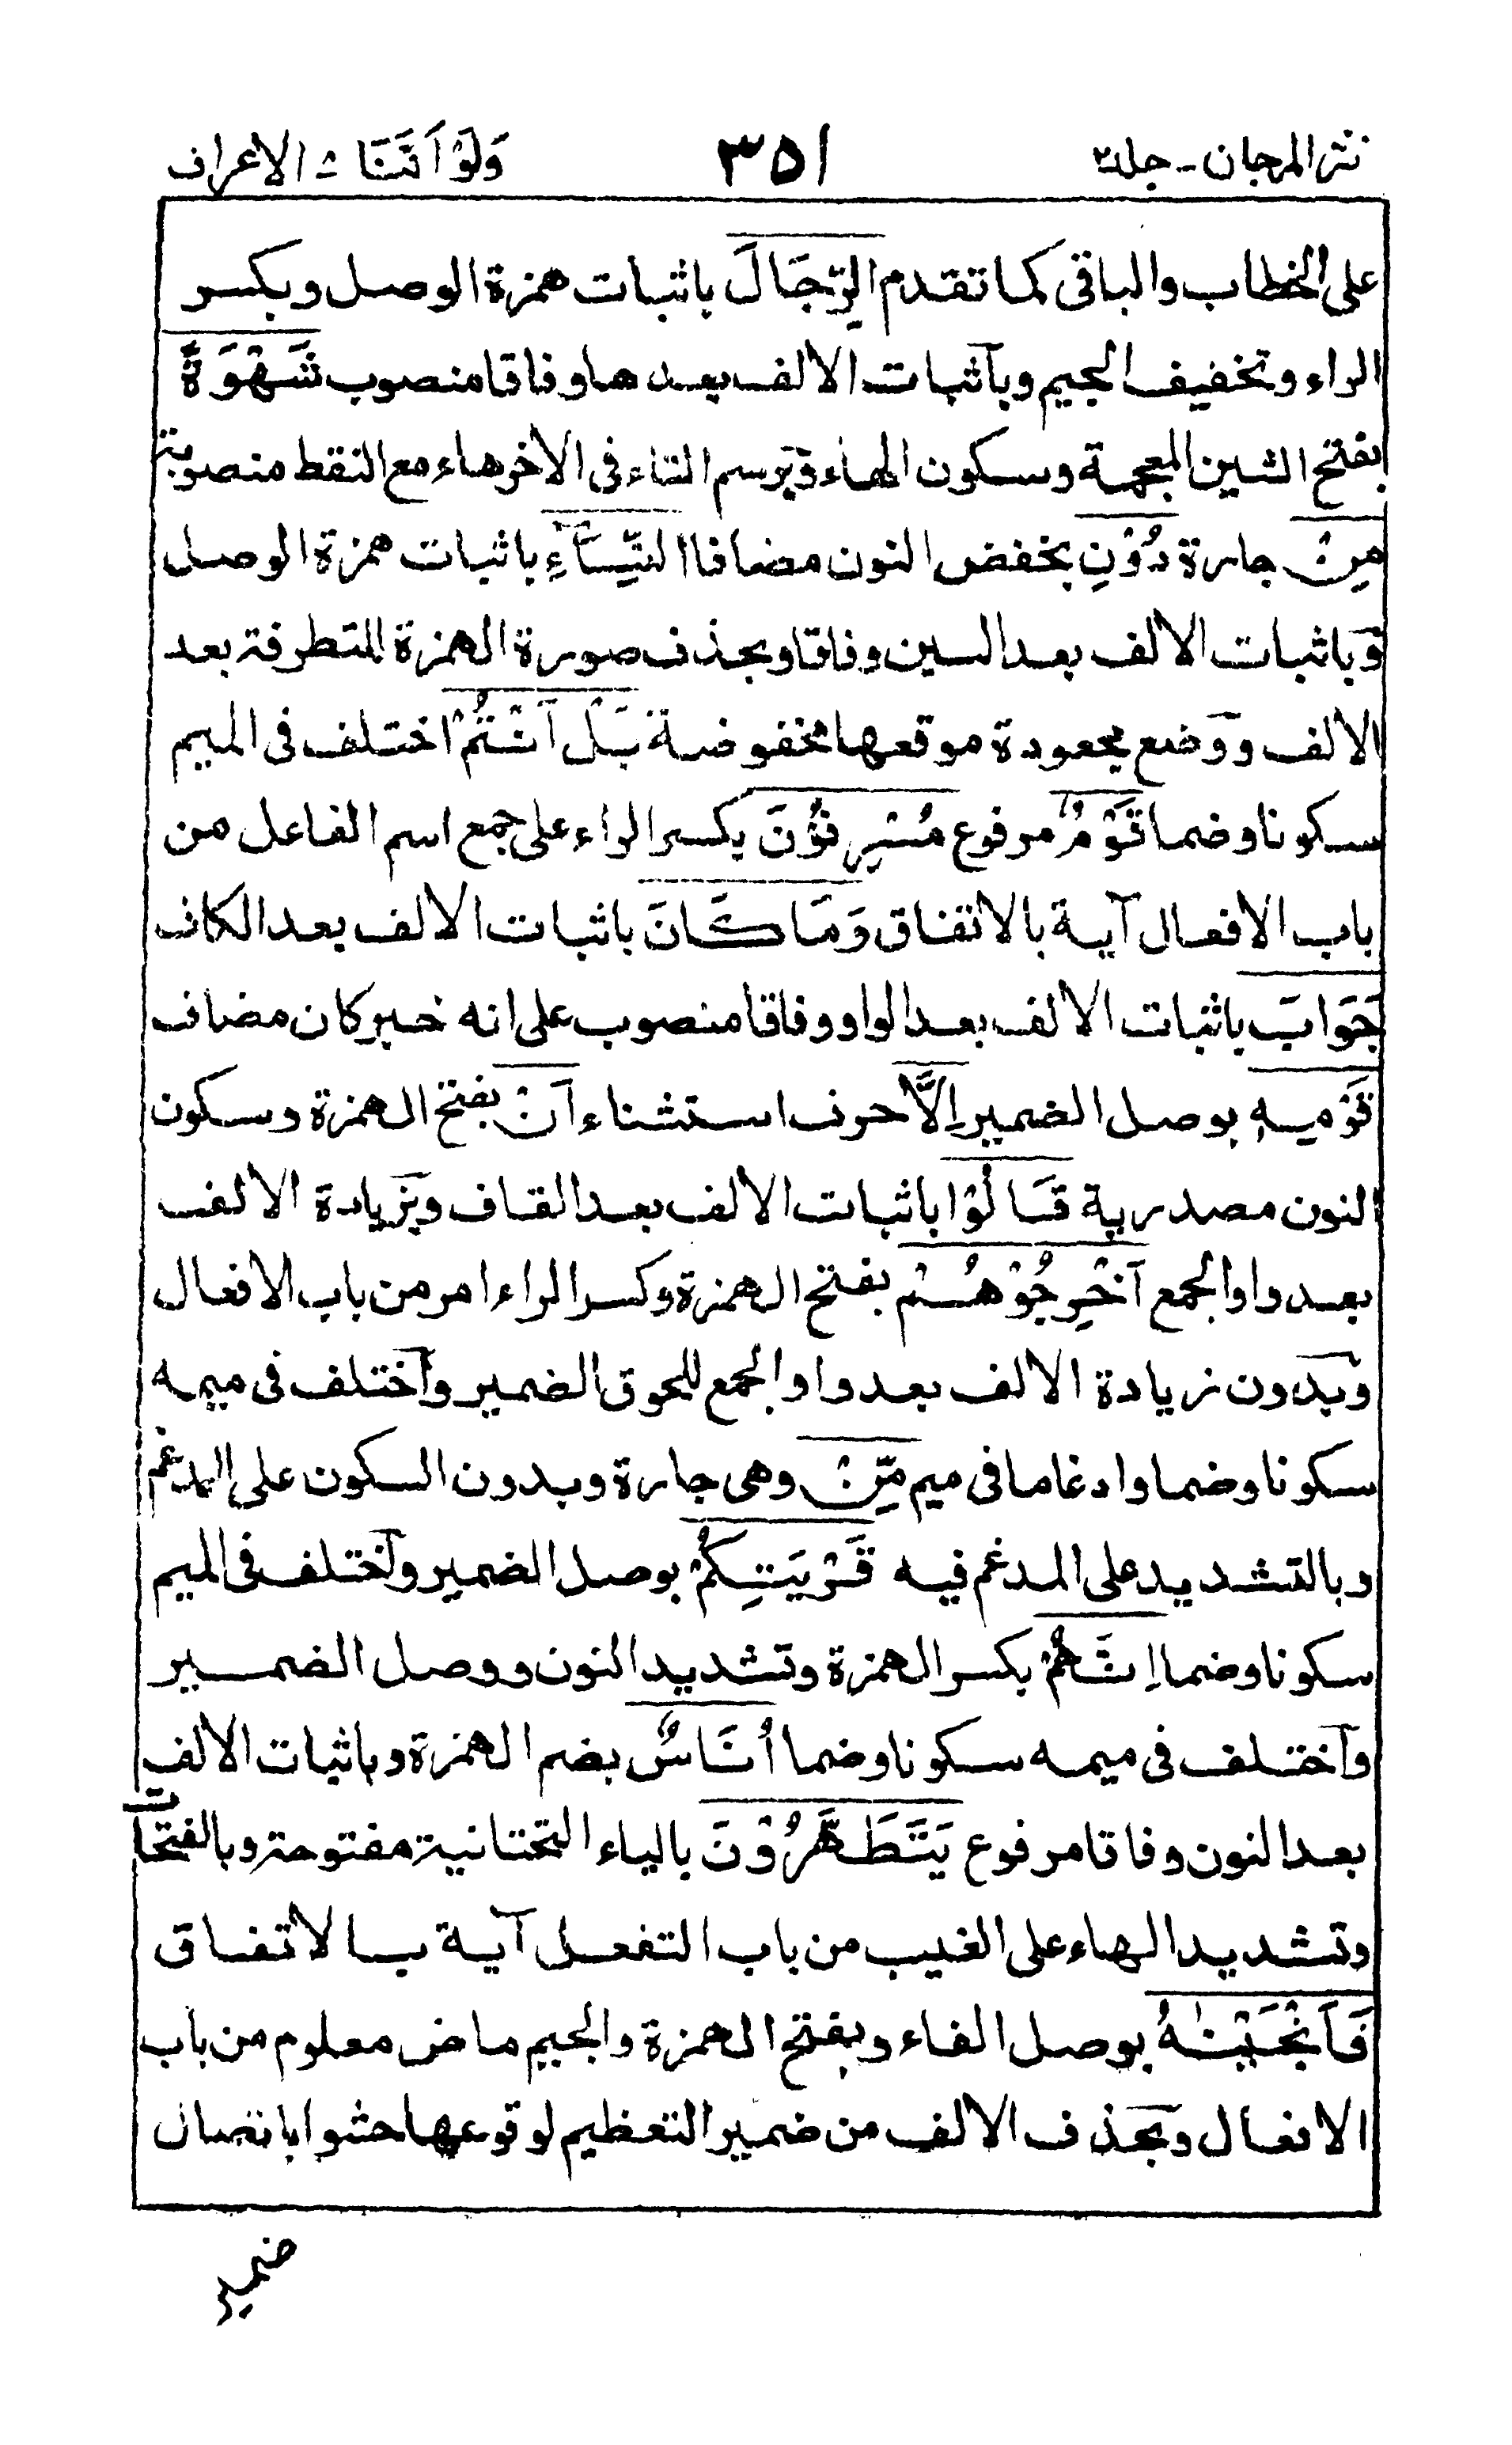 نثر المرجان - جلد ٢ ٣٥١ وَلَوْ اَنَّنَا - الاعراف
على الخطاب والباقى كما تقدم الرِّجَالَ باثبات همزة الوصل وبكسر
الراء وتخفيف الجيم وبآثبات الالف بعدها وفاقا منصوب شَهْوَةً
بفتح الشين المعجمة وسكون الهاء وٓبرسم التاء فى الاخر هاء مع النقط منصوبة
مِنْ جارة دُوْنِ بخفض النون مضافا النِّسَآءِ باثبات همزة الوصل
وٓباثبات الالف بعد السين وفاقا وبحذف صورة الهمزة المتطرفة بعد
الالف ووٓضع مجعودة موقعها مخفوضة بَلْ اَنْتُمْ اختلف فى الميم
سكونا وضما قَوْمٌ مرفوع مُسْرِفُوْنَ بكسر الراء على جمع اسم الفاعل من
باب الافعال آية بالاتفاق وَمَا كَانَ باثبات الالف بعد الكاف
جَوَابَ باثبات الالف بعد الواو وفاقا منصوب على انه خبر كان مضاف
قَوْمِهٖ بوصل الضمير اِلَّا حرف استثناء اَنْ بفتح الهمزة وسكون
النون مصدرية قَالُوْا باثبات الالف بعد القاف وبٓزيادة الالف
بعد واو الجمع اَخْرِجُوْهُمْ بفتح الهمزة وكسر الراء امر من باب الافعال
وبٓدون زيادة الالف بعد واو الجمع للحوق الضمير وآختلف فى ميمه
سكونا وضما وادغاما فى ميم مِّنْ وهى جارة وبدون السكون على المدغم
وبالتشديد على المدغم فيه قَرْيَتِكُمْ بوصل الضمير وآختلف فى الميم
سكونا وضما اِنَّهُمْ بكسر الهمزة وتشديد النون ووصل الضمير
وآختلف فى ميمه سكونا وضما اُنَاسٌ بضم الهمزة وباثبات الالف
بعد النون وفاقا مرفوع يَتَطَهَّرُوْنَ بالياء التحتانية مفتوحة وبالفتحات
وتشديد الهاء على الغيب من باب التفعل آية بالاتفاق
فَاَنْجَيْنٰهُ بوصل الفاء وبفتح الهمزة والجيم ماض معلوم من باب
الافعال وبٓحذف الالف من ضمير التعظيم لوقوعها حشوا باتصال
ضمير